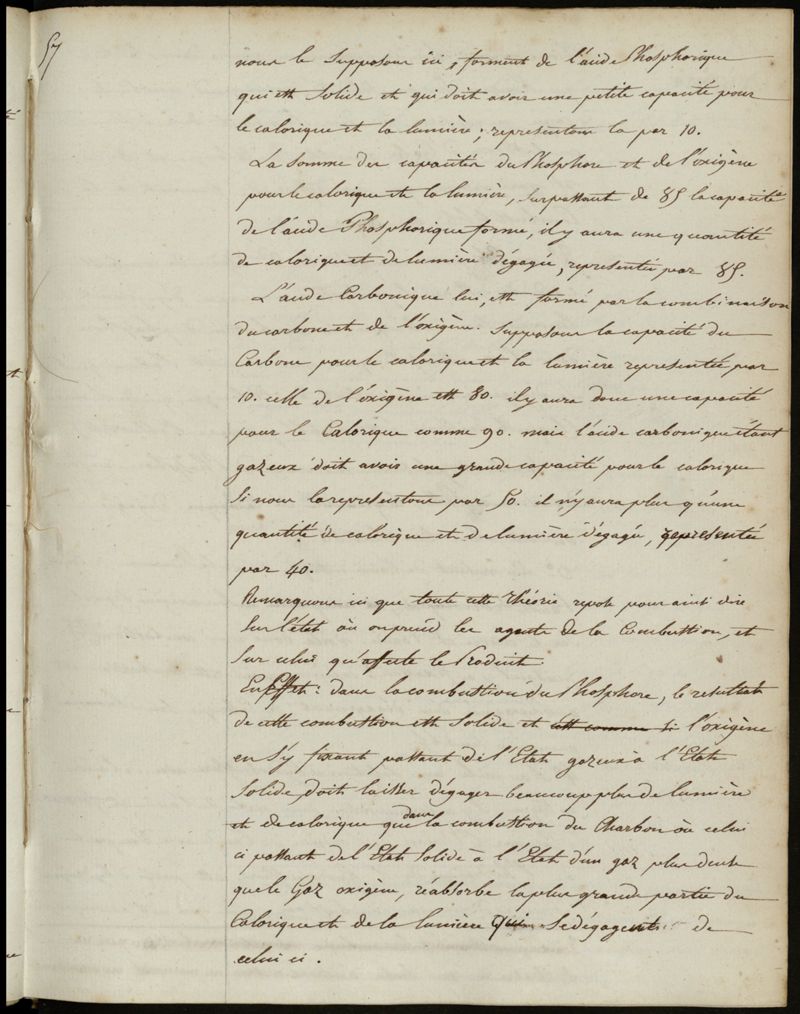 57
nous le supposons ici, forment de l'acide Phosphorique
qui est solide et qui doit avoir une petite capacité pour
le calorique et la lumière; representons la par 10.
La somme des capacités du Phosphore et de l'oxigène
pour le calorique et la lumière, surpassant de 85 la capacité
de l'acide Phosphorique formé, il y aura une quantité
de calorique et de lumière dégagée, representée par 85.
L'acide Carbonique lui, est formé par la combinaison
du carbone et de l'oxigène. Supposons la capacité du
Carbone pour le calorique et la lumière representée par
10. celle de l'oxigène est 80. il y aura donc une capacité
pour le Calorique comme 90. mais l'acide carbonique étant
gazeux doit avoir une grande capacité pour le calorique
si nous la representons par 50. il n'y aura plus qu'une
quantité de calorique et de lumière dégagée, representée
par 40.
Remarquons ici que toute cette théorie repose pour ainsi dire
sur l'état où on prend les agents de la Combustion, et
sur celui qu'affecte le Produit.
En Effet: dans la combustion du Phosphore, le resultat
de cette combustion est solide et est comme si l'oxigène
en s'y fixant passant de l'Etat gazeux à l'Etat
solide, doit laisser dégager beaucoup plus de lumière
et de calorique que dans la combustion du Charbon où celui
ci passant de l'Etat solide à l'Etat d'un gaz plus dense
que le Gaz oxigène, réabsorbe la plus grande partie du
Calorique et de la lumière qui se dégagent de
celui ci.